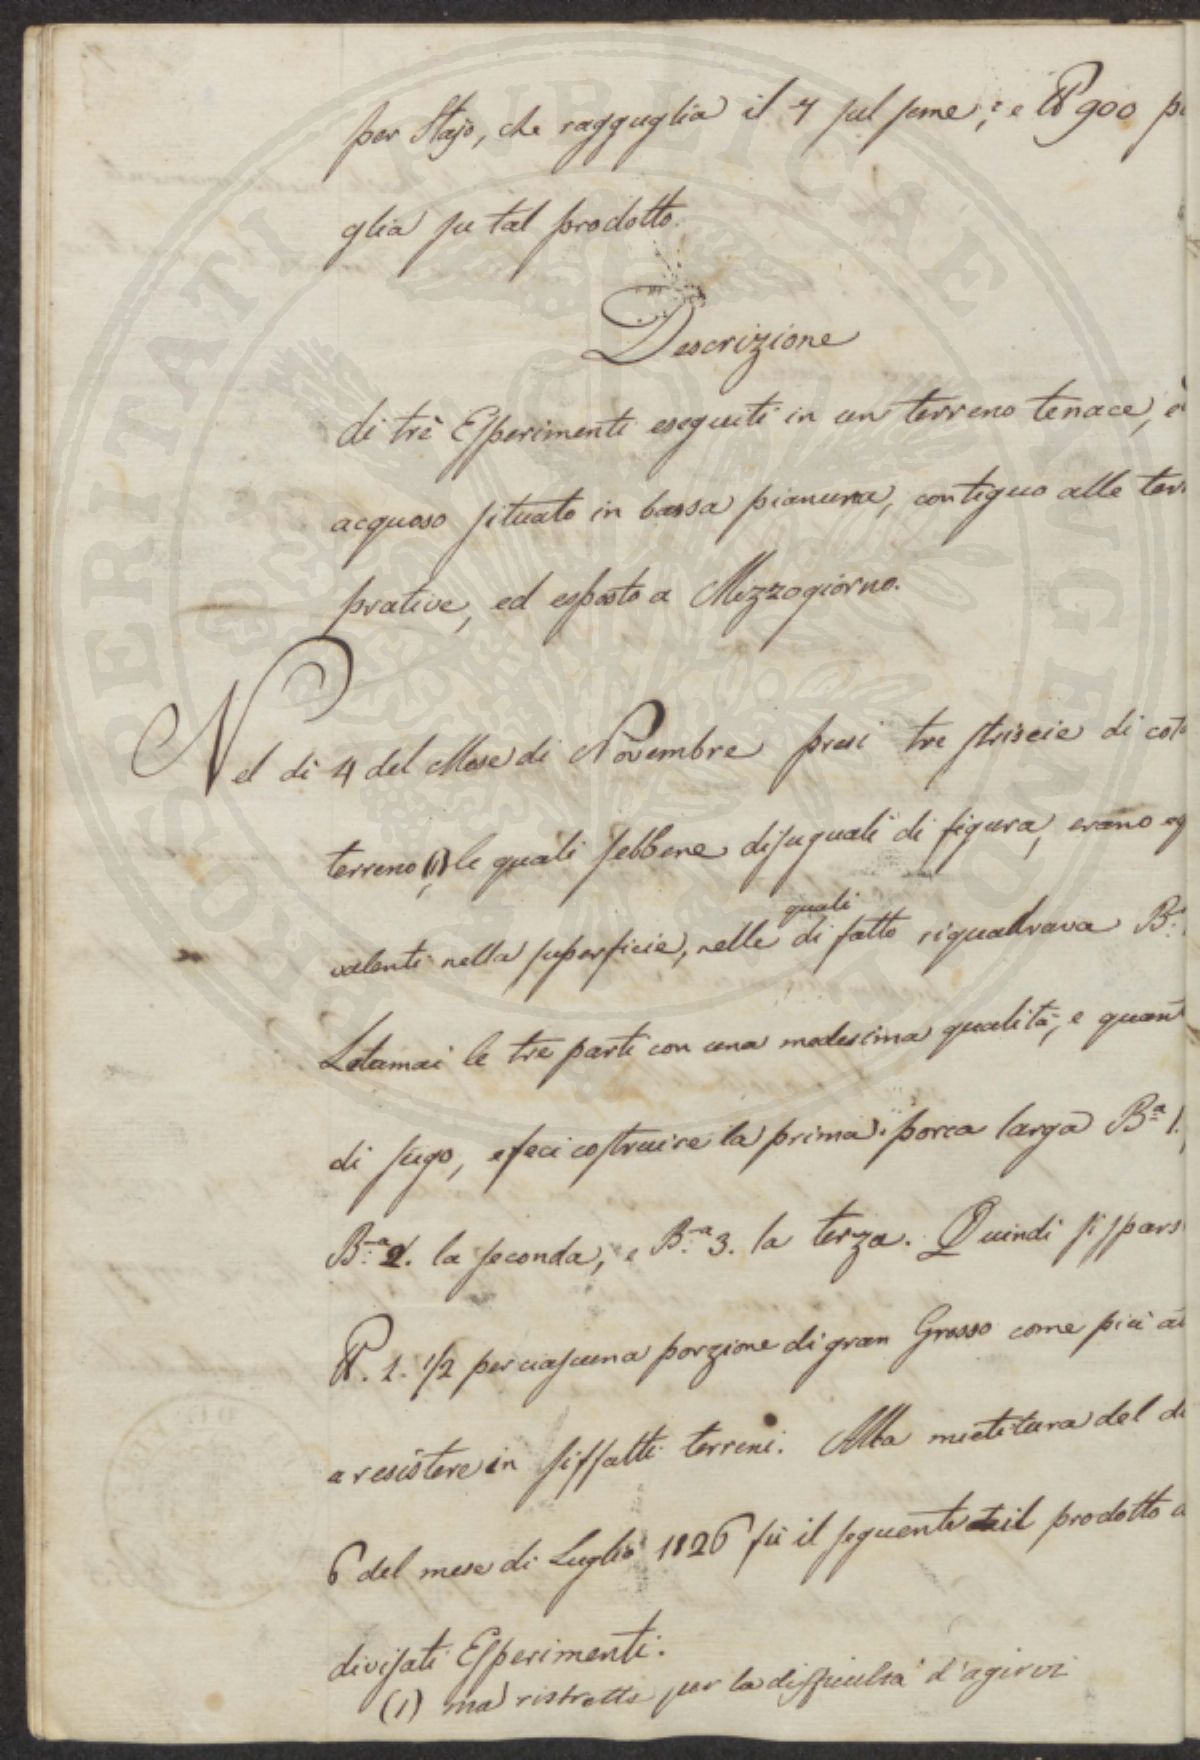 per Stajo, che ragguaglia il 4 sul seme; e ℔ 900 pa
glia su tal prodotto.
Descrizione
di trè Esperimenti eseguiti in un terreno tenace, e
acquoso situato in bassa pianura, contiguo alle terr
prative, ed esposto a Mezzogiorno.
Nel dì 4 del Mese di Novembre presi tre striscie di cot
terreno (1) le quali sebbene disuguali di figura, erano eq
valenti nella superficie, nelle quali di fatto riquadrava B.ª
Letamai le tre parti con una medesima qualità, e quant
di sugo, e feci costruire la prima porca larga B.ª 1.
B.ª 2. la seconda, e B.ª 3. la terza. Quindi si spars
℔. 1. 1/2 per ciascuna porzione di gran Grosso come più at
a resistere in siffatti terreni. Alla mietitura del dì
6 del mese di Luglio 1826 fù il seguente il prodotto d
divisati Esperimenti.
(1) ma ristrette per la difficultà d'agirvi
PROSPERITATI PUBLICAE AUGENDAE